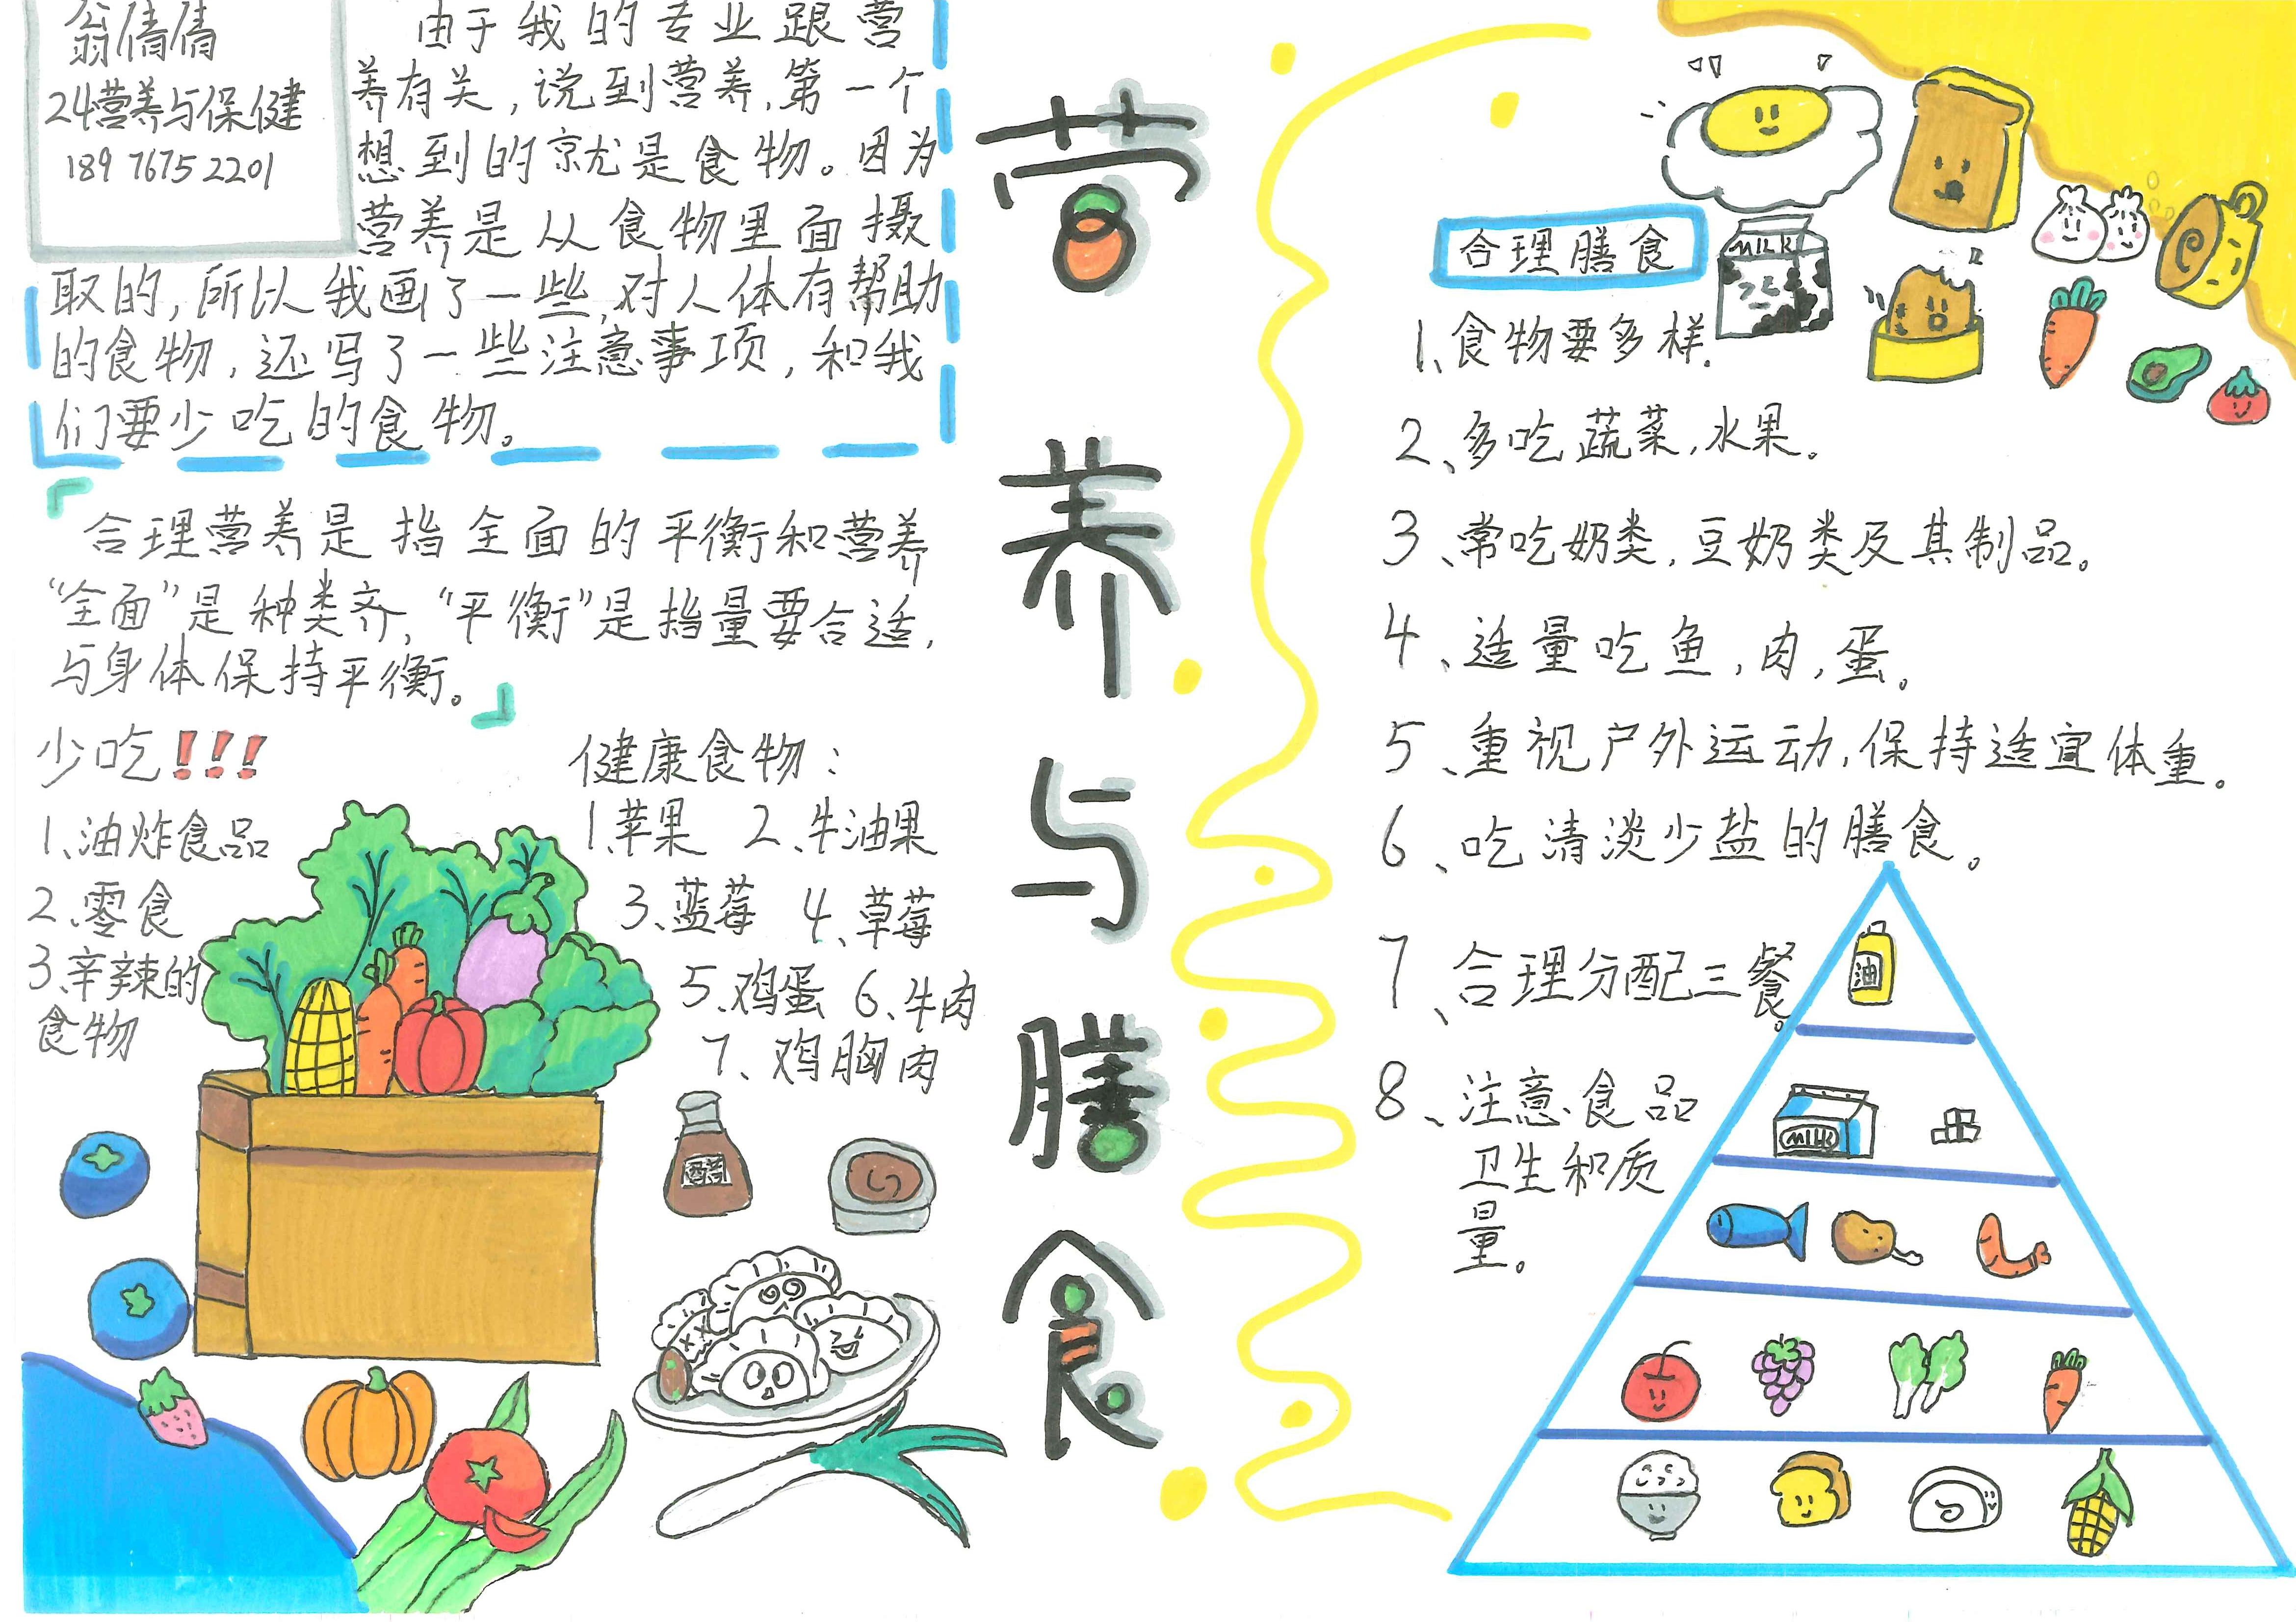 翁倩倩
24营养与保健
189 7675 2201
由于我的专业跟营
养有关，说到营养，第一个
想到的就是食物。因为
营养是从食物里面摄
取的，所以我画了一些，对人体有帮助
的食物，还写了一些注意事项，和我
们要少吃的食物。
合理营养是指全面的平衡和营养
“全面”是种类齐，“平衡”是指量要合适，
与身体保持平衡。
少吃!!!
1、油炸食品
2、零食
3、辛辣的
食物
健康食物：
1、苹果 2、牛油果
3、蓝莓 4、草莓
5、鸡蛋 6、牛肉
7、鸡胸肉
营养与膳食
合理膳食
MILK
1、食物要多样.
2、多吃蔬菜，水果。
3、常吃奶类，豆奶类及其制品。
4、适量吃鱼，肉，蛋。
5、重视户外运动，保持适宜体重。
6、吃清淡少盐的膳食。
7、合理分配三餐。
8、注意食品
卫生和质
量。
油
MILK